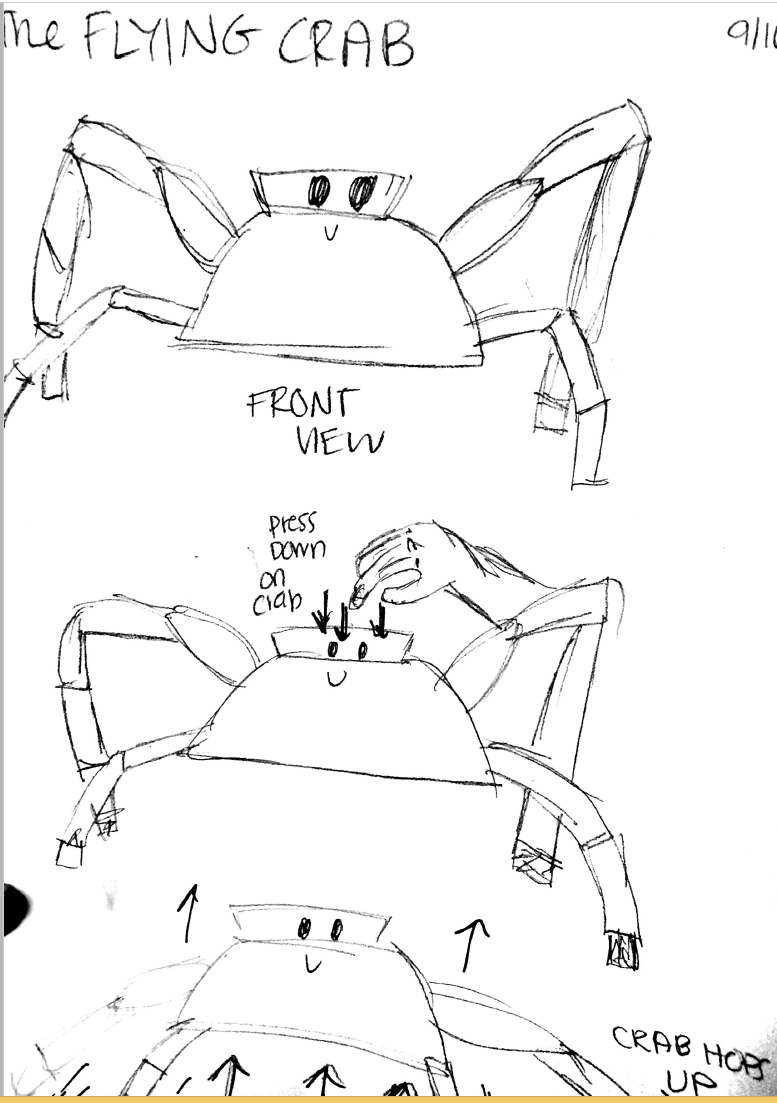 The FLYING CRAB
9/10
FRONT
VIEW
press
Down
on
crab
CRAB HOPS
UP